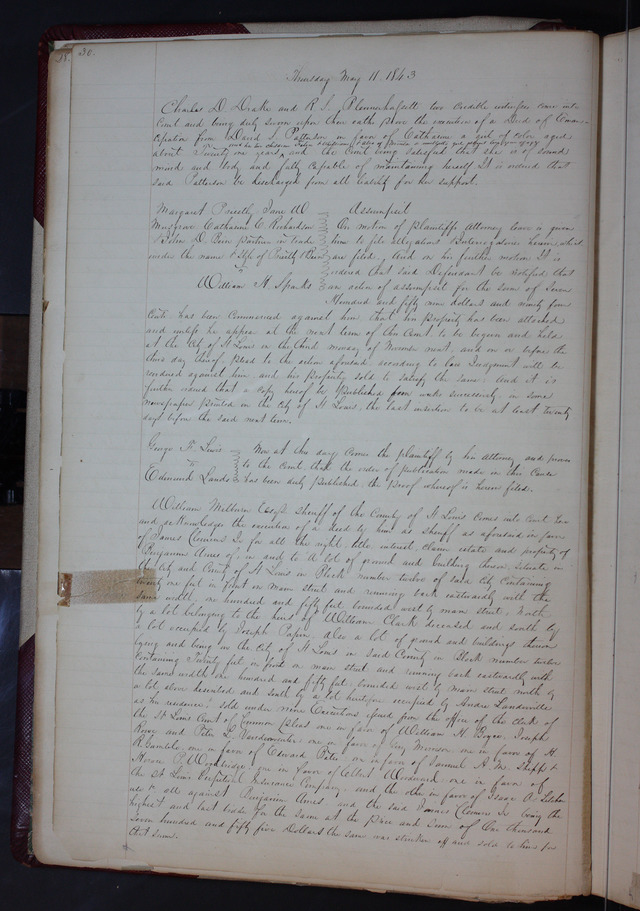 30.
Thursday May 11. 1843
Charles D. Drake and R. S. Blennerhassett two credible witnesses come into
Court and being duly sworn upon their oath prove the execution of a Deed of Eman-
cipation from David L. Patterson in favor of Catharine a girl of color aged
about Twenty one years, and the Court being satisfied that she is of sound
mind and body and fully capable of maintaining herself It is ordered that
said Patterson be discharged from all liability for her support.
Margaret Priestly, Jane
Musgrove Catharine C. Richardson
& John D. Perin partners in trade
under the name & style of Priestly & Perin
vs
William H. Sparks
Assumpsit
On motion of Plaintiffs Attorney leave is given
him to file herein, which
are filed, And on his further motion It is
ordered that said Defendant be notified that
an action of assumpsit for the sum of Seven
Hundred and fifty nine dollars and ninety four
Cents has been commenced against him that his property has been attached
and unless he appear at the next term of this Court to be begun and held
at the City of St Louis on the third monday of November next, and on or before the
third day thereof, plead to the action aforesaid according to law Judgment will be
rendered against him, and his property sold to satisfy the same. And it is
further ordered that a copy hereof be published four weeks successively in some
newspaper printed in the City of St Louis, the last insertion to be at least twenty
days before the said next term.
George F. Lewis
vs
Edmund Landis
Now at this day comes the plaintiff by his Attorney and proves
to the Court, that the order of publication made in this cause
has been duly published the proof whereof is herein filed.
William Milburn Esqr. Sheriff of the County of St Louis comes into Court here
and acknowledges the execution of a deed by him as Sheriff as aforesaid in favor
of James Clemens Jr for all the right, title, interest, claim estate and property of
Benjamin Ames of, in and to A lot of ground and buildings thereon situate in
the City and County of St Louis in Block number twelve of said City Containing
twenty one feet in front on Main street and running back eastwardly with the
same width, one hundred and fifty feet bounded west by main street, North
by a lot belonging to the heirs of William Clark deceased and south by
a lot occupied by Joseph Papin, also a lot of ground and buildings thereon
lying and being in the City of St Louis in said County in Block number twelve
Containing Twenty feet in front on main street and running back eastwardly with
the same width one hundred and fifty feet, bounded west by Main street north by
a lot above described and south by a lot heretofore occupied by Andre Landreville
as his residence, sold under nine Executions issued from the office of the Clerk of
the St Louis Court of Common pleas one in favor of William H. Boyce, Joseph
and Peter L. one in favor of one in favor of H.
R. Gamble, one in favor of Edward Bates, one in favor of Samuel A. M. Shipp &
P. Woodbridge, one in favor of one in favor of
the St Louis Perpetual Insurance Company, and the other in favor of Isaac A. Letcher
all against Benjamin Ames, and the said James Clemens Jr being the
highest and last bidder for the same at the price and sum of One thousand
Seven hundred and fifty five Dollars the same was stricken off and sold to him for
that sum.